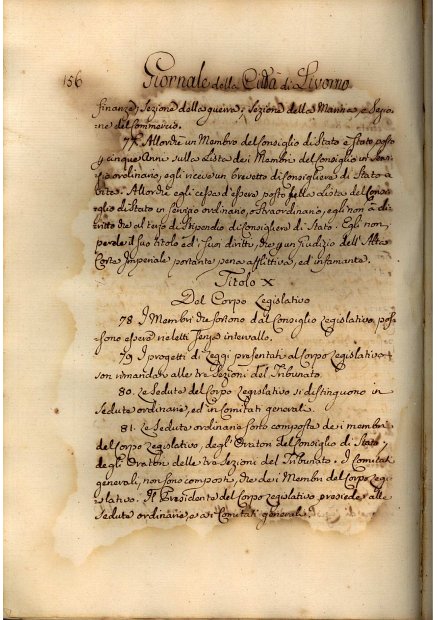 156 Giornale della Città di Livorno
finanze; Sezione della guerra; Sezione della Marina, e Sezio=
ne del Commercio.
77. Allorchè un Membro del Consiglio di Stato è stato posto
p cinque Anni sulla Lista dei Membri del Consiglio in Ser=
vizio ordinario, egli riceve un brevetto di Consigliere di Stato a
vita. Allorchè egli cessa d'essere posto sulla Lista del Consi=
glio di Stato in servizio ordinario, o straordinario, egli non à di=
ritto che al terzo di Stipendio di Consigliere di Stato. Egli non
perde il suo titolo ed i suoi diritti, che p un Giudizio dell'Alta
Corte Imperiale portante pena afflittiva, ed infamante.
Titolo X
Del Corpo Legislativo
78. I Membri che sortono dal Consiglio Legislativo, pos=
sono essere rieletti senza intervallo.
79. I progetti di Leggi presentati al Corpo Legislativo
son rimandati alle tre Sezioni del Tribunato.
80. Le Sedute del Corpo Legislativo si distinguono in
Sedute ordinarie, ed in Comitati generali.
81. Le Sedute ordinarie sono composte dei membri
del Corpo Legislativo, degli Oratori del Consiglio di Stato,
degli Oratori delle tre Sezioni del Tribunato. I Comitati
generali, non sono composti, che dei Membri del Corpo Legi=
slativo. Il Presidente del Corpo Legislativo presiede alle
Sedute ordinarie, e ai Comitati generali.